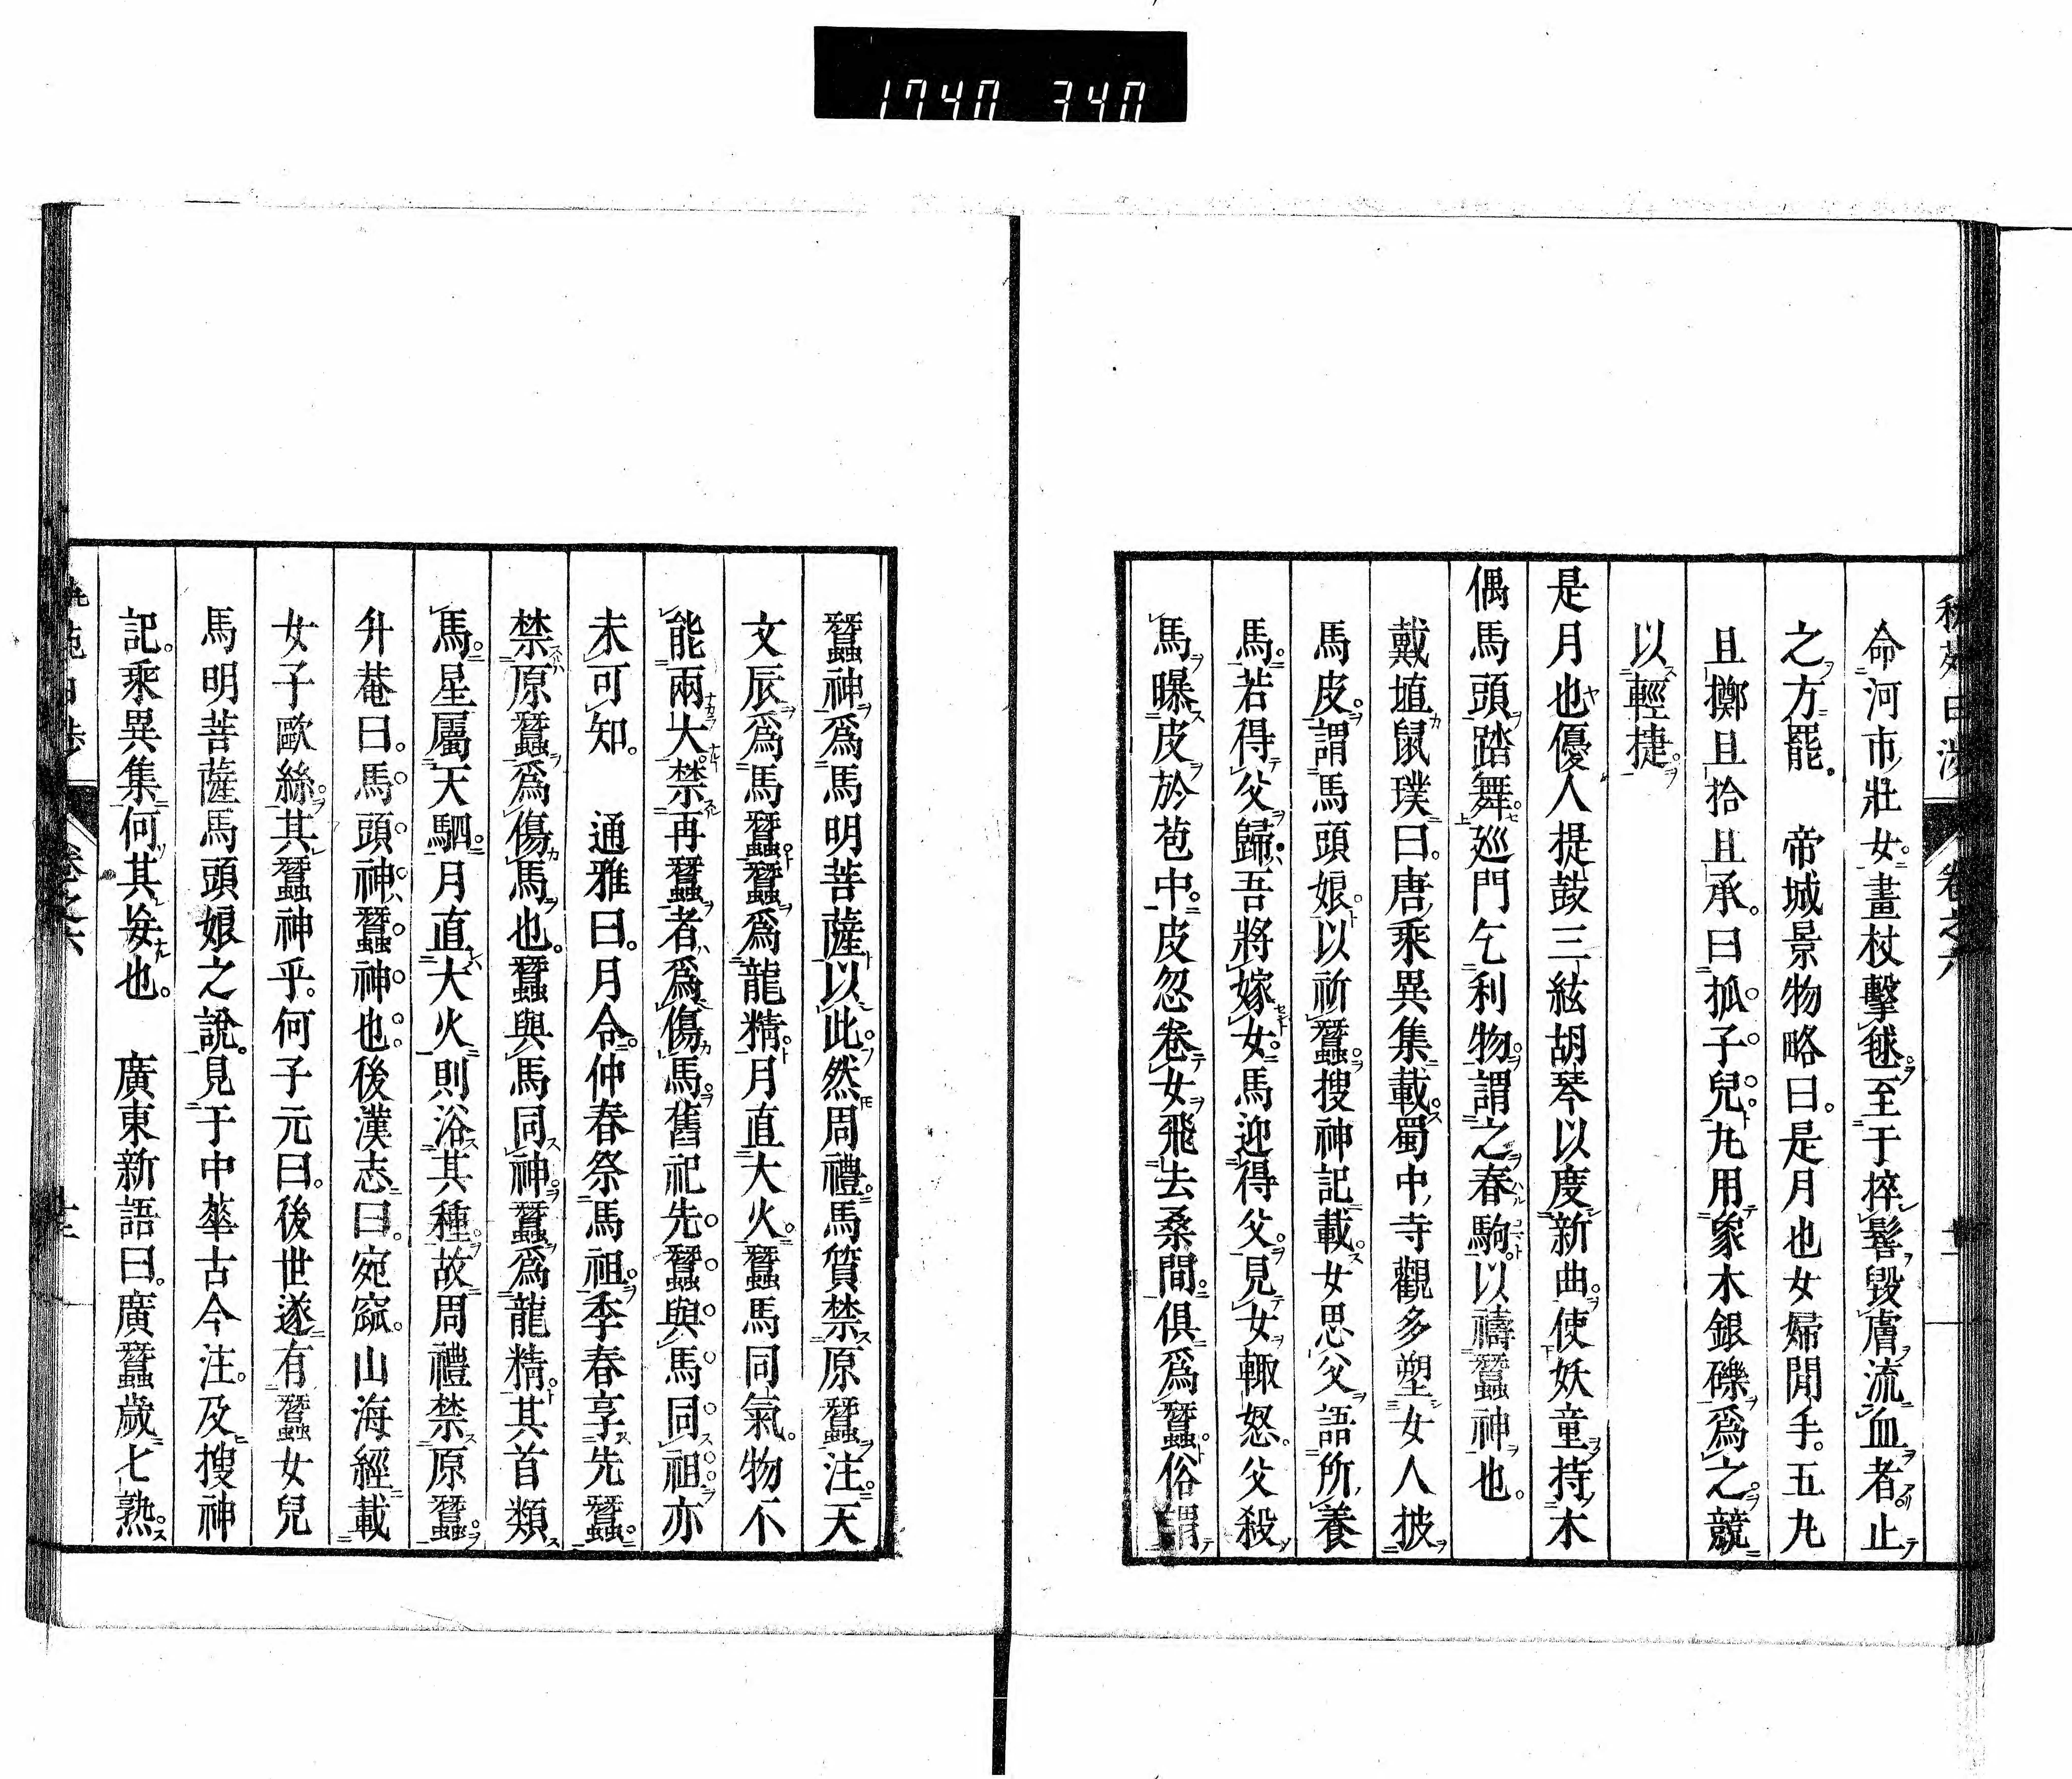 1740 340
命河市壯女畫杖擊毬至于捽髻毀膚流血者止
之方罷 帝城景物略曰是月也女婦閒手五丸
且擲且拾且承曰抓子兒丸用象木銀礫爲之競
以輕捷
是月也優人提鼓三絃胡琴以度新曲使妖童持木
偶馬頭踏舞廵門乞利物謂之春駒以禱蠶神也
戴埴鼠璞曰唐乘異集載蜀中寺觀多塑女人披
馬皮謂馬頭娘以祈蠶搜神記載女思父語所養
馬若得父歸吾將嫁女馬迎得父見女輙怒父殺
馬曝皮於苞中皮忽卷女飛去桑間俱爲蠶俗謂
蠶神爲馬明菩薩以此然周禮馬質禁原蠶注天
文辰爲馬蠶蠶爲龍精月直大火蠶馬同氣物不
能兩大禁再蠶者爲傷馬舊祀先蠶與馬同祖亦
未可知 通雅曰月令仲春祭馬祖季春享先蠶
禁原蠶爲傷馬也蠶與馬同神蠶爲龍精其首類
馬星屬天駟月直大火則浴其種故周禮禁原蠶
升菴曰馬頭神蠶神也後漢志曰宛窳山海經載
女子歐絲其蠶神乎何子元曰後世遂有蠶女兒
馬明菩薩馬頭娘之說見于中華古今注及搜神
記乘異集何其妄也 廣東新語曰廣蠶歲七熟
卷之六